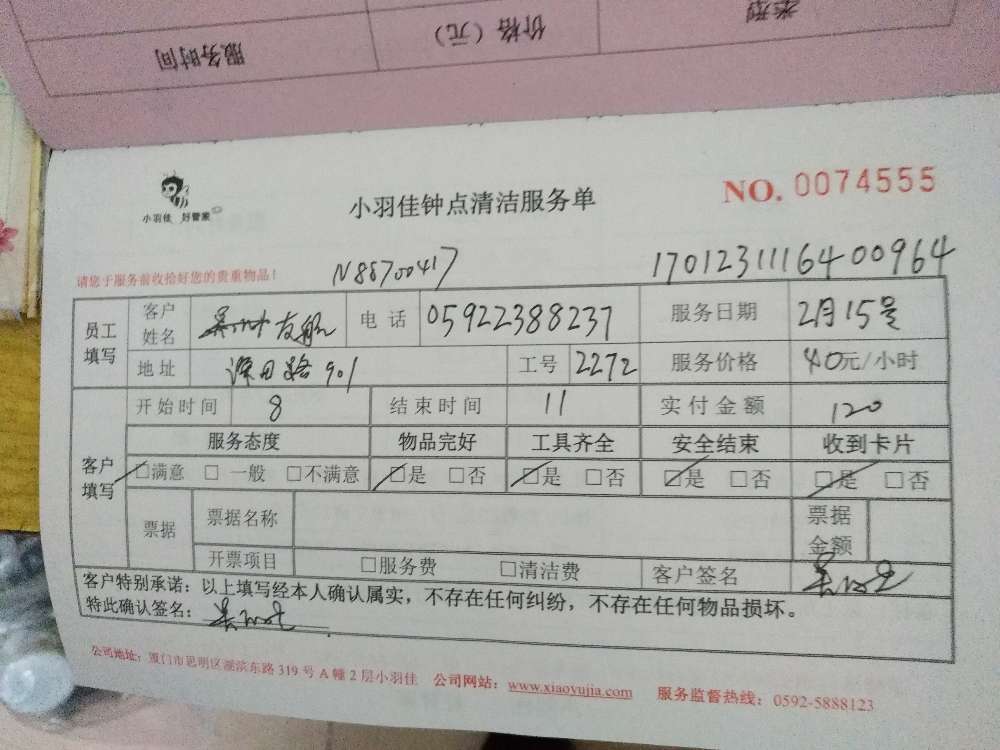 类型
价格（元）
服务时间
小羽佳 好管家
小羽佳钟点清洁服务单
NO. 0074555
请您于服务前收拾好您的贵重物品！
N88700417
1701231116400964
员工填写
客户姓名
电话 05922388237
服务日期 2月15号
地址 901
工号 2272
服务价格 40元/小时
客户填写
开始时间 8
结束时间 11
实付金额 120
服务态度 物品完好 工具齐全 安全结束 收到卡片
☑满意 □一般 □不满意 ☑是 □否 ☑是 □否 ☑是 □否 ☑是 □否
票据 票据名称 票据金额
开票项目 □服务费 □清洁费 客户签名
客户特别承诺：以上填写经本人确认属实，不存在任何纠纷，不存在任何物品损坏。
特此确认签名：
公司地址：厦门市思明区湖滨东路319号A幢2层小羽佳 公司网站：www.xiaoyujia.com 服务监督热线：0592-5888123